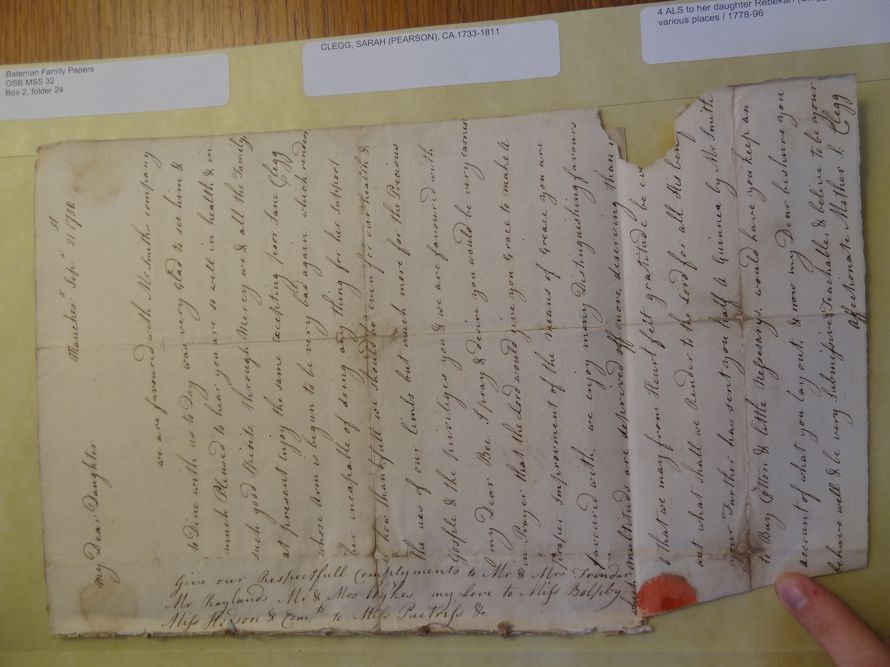 Bateman Family Papers
OSB MSS 32
Box 2, folder 24
CLEGG, SARAH (PEARSON), CA.1733-1811
4 ALS to her daughter Rebekah
various places / 1778-96
Manches.r Sep.r 21st 1786
My Dear Daughter
we are favoured with Mr Smiths company
to Dine with us to Day was very Glad to see him &
much Pleased to hear you are so well in health & in
such good spirits, through Mercy we & all the Family
at present Enjoy the same Excepting poor Jane Clegg
whose Arm is begun to be very bad again which renders
her incapable of doing any thing for her support
how thankfull we should be even for our health &
the uses of our limbs but much more for the Precious
Gosple & the priviliges you & we are favoured with
my Dear Bec. I pray & desire you would be very earnest
in Prayer that the Lord would give you Grace to make a
proper Improvement of the means of Greace you are
favoured with, we enjoy many Distinguishing favours
multituds are deprived off more deserving than
O that we may from Heart felt gratitude be
out what shall we Render to the Lord for all His
your Father has sent you half a Guinnea by Mr Smith
to Buy Cotton & little Nessesarys, would have you keep an
account of what you lay out. & now my Dear be sure you
behave well & be very submissive & Teachable & believe to be your
affectionate Mother S. Clegg
Give our Respectfull Complyments to Mr & Mrs
Mr Roylands Mr & Mrs Wykes, my Love to Miss
Miss & Comts to Miss &c